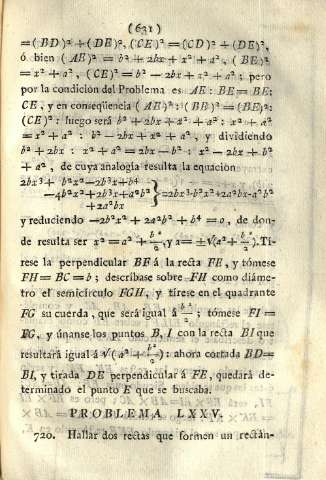 (631)
=(BD)²+(DE)², (CE)²=(CD)²+(DE)²,
ó bien (AE)²=b²+2bx+x²+a², (BE)²
=x²+a², (CE)²=b²-2bx+x²+a²; pero
por la condición del Problema es AE: BE= BE:
CE, y en conseqüencia (AE)²:(BE)²=(BE)²:
(CE)²: luego será b²+2bx+x²+a²: x²+a²
=x²+a²: b²-2bx+x²+a², y dividiendo
b²+2bx: x²+a²=2bx-b²: x²-2bx+b²
+a², de cuya analogía resulta la equación
2bx³+b²x²-2b³x+b⁴
-4b²x²+2b³x+a²b² }=2bx³-b²x²+2a²bx-a²b²
+2a²bx
y reduciendo -2b²x²+2a²b²+b⁴=0, de don-
de resulta ser x²=a²+b²/2, y x=±√(a²+b²/2). Ti-
rese la perpendicular BF á la recta FE, y tómese
FH=BC=b; descríbase sobre FH como diáme-
tro el semicírculo FGH, y tírese en el quadrante
FG su cuerda, que será igual á b²/2; tómese FI=
FG, y únanse los puntos B, I con la recta BI que
resultará igual á √(a²+b²/2): ahora cortada BD=
BI, y tirada DE perpendicular á FE, quedará de-
terminado el punto E que se buscaba.
PROBLEMA LXXV.
720. Hallar dos rectas que formen un rectán-